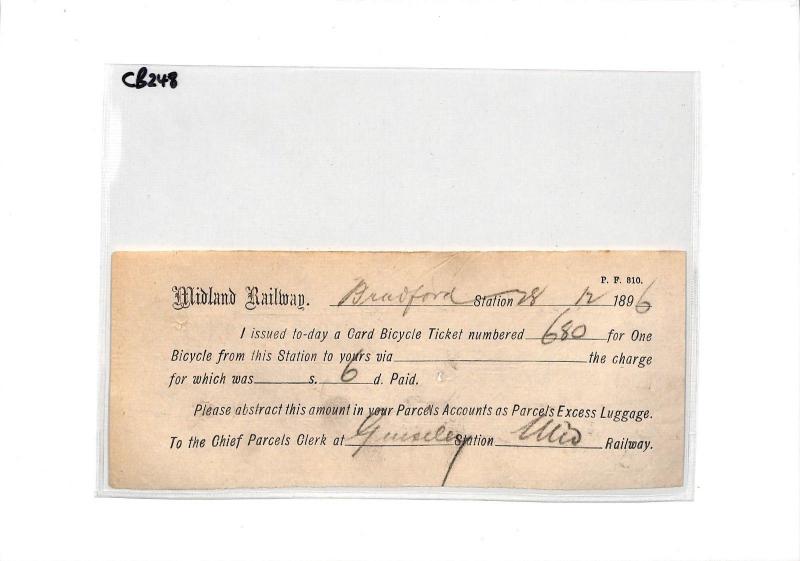 CB248
P. F. 810.
Midland Railway. Bradford Station 28 12 1896
I issued to-day a Card Bicycle Ticket numbered 680 for One
Bicycle from this Station to yours via the charge
for which was s. 6 d. Paid.
Please abstract this amount in your Parcels Accounts as Parcels Excess Luggage.
To the Chief Parcels Clerk at Guiseley Station Mid Railway.